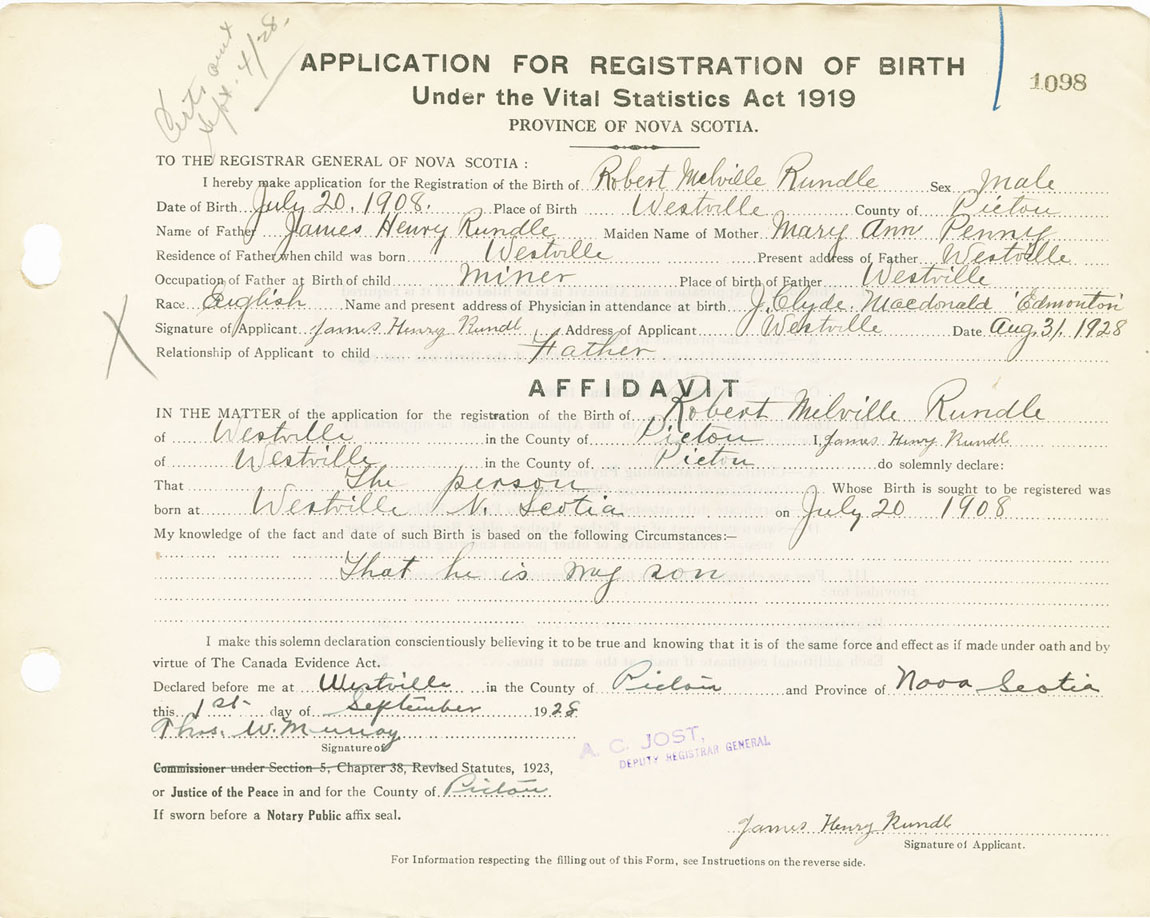 Certs sent
Sept. 4/28.
APPLICATION FOR REGISTRATION OF BIRTH
1098
Under the Vital Statistics Act 1919
PROVINCE OF NOVA SCOTIA.
TO THE REGISTRAR GENERAL OF NOVA SCOTIA :
I hereby make application for the Registration of the Birth of Robert Melville Rundle Sex Male
Date of Birth July 20, 1908. Place of Birth Westville County of Pictou
Name of Father James Henry Rundle Maiden Name of Mother Mary Ann Penny
Residence of Father when child was born Westville Present address of Father Westville
Occupation of Father at Birth of child miner Place of birth of Father Westville
Race English Name and present address of Physician in attendance at birth J. Clyde Macdonald 'Edmonton'
Signature of Applicant James Henry Rundl Address of Applicant Westville Date Aug 31, 1928
Relationship of Applicant to child Father
AFFIDAVIT
IN THE MATTER of the application for the registration of the Birth of Robert Milville Rundle
of Westville in the County of Pictou I, James Henry Rundl
of Westville in the County of Pictou do solemnly declare:
That The person Whose Birth is sought to be registered was
born at Westville N. Scotia on July 20 1908
My knowledge of the fact and date of such Birth is based on the following Circumstances:—
That he is my son
I make this solemn declaration conscientiously believing it to be true and knowing that it is of the same force and effect as if made under oath and by
virtue of The Canada Evidence Act.
Declared before me at Westville in the County of Pictou and Province of Nova Scotia
this 1st day of September 1928
Thos. W. Murray
Signature of
A. C. JOST,
DEPUTY REGISTRAR GENERAL
Commissioner under Section 5, Chapter 38, Revised Statutes, 1923,
or Justice of the Peace in and for the County of Pictou
If sworn before a Notary Public affix seal.
James Henry Rundl
Signature of Applicant.
For Information respecting the filling out of this Form, see Instructions on the reverse side.